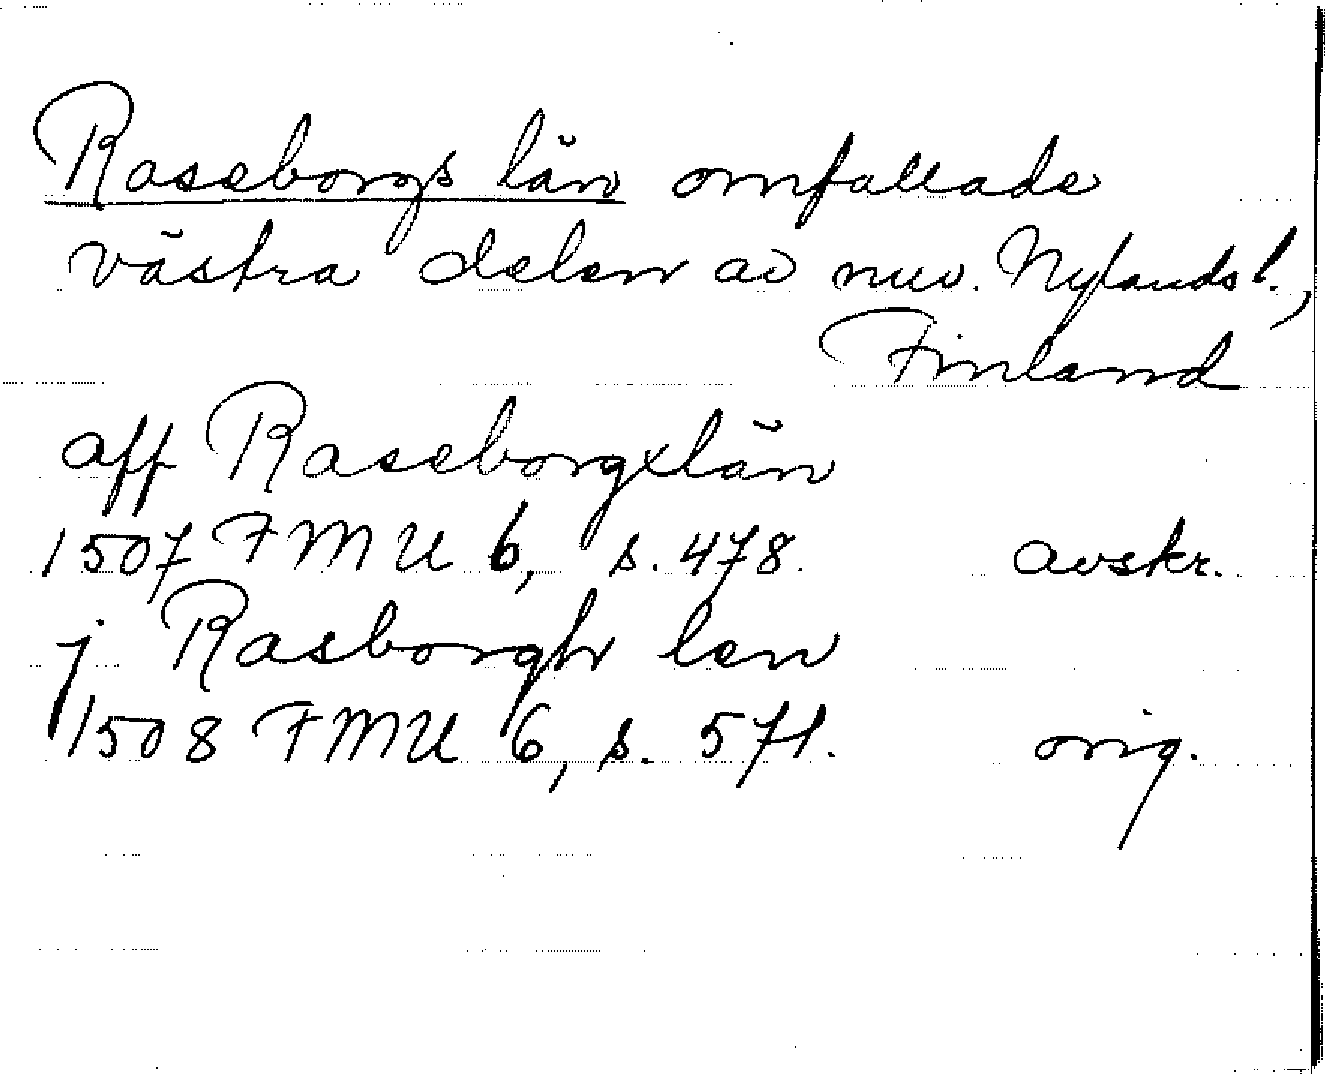 Raseborgs län omfattade
västra delen av nuv. Nylands l.,
Finland
aff Raseborgxlän
1507 FMU 6, s. 478. avskr.
j Rasborgh len
1508 FMU 6, s. 571. orig.